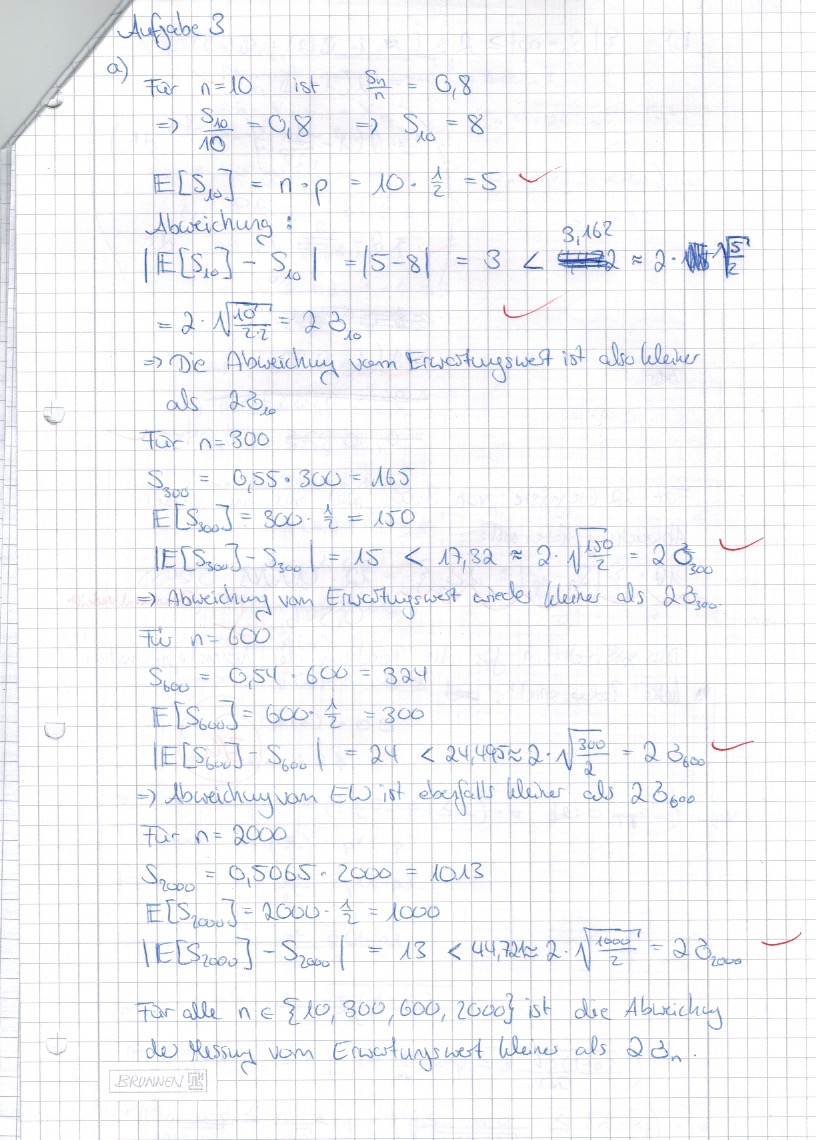 Aufgabe 3
a) Für n=10 ist Sn/n = 0,8
=> S10/10 = 0,8 => S10 = 8
E[S10] = n·p = 10·1/2 = 5
Abweichung:
3,162
|E[S10] - S10| = |5-8| = 3 < ≈ 2·√(5/2)
= 2·√(10/(2·2)) = 2σ10
=> Die Abweichung vom Erwartungswert ist also kleiner
als 2σ10
Für n=300
S300 = 0,55·300 = 165
E[S300] = 300·1/2 = 150
|E[S300] - S300| = 15 < 17,32 ≈ 2·√(150/2) = 2σ300
=> Abweichung vom Erwartungswert wieder kleiner als 2σ300.
Für n=600
S600 = 0,54·600 = 324
E[S600] = 600·1/2 = 300
|E[S600] - S600| = 24 < 24,495 ≈ 2·√(300/2) = 2σ600
=> Abweichung vom EW ist ebenfalls kleiner als 2σ600
Für n=2000
S2000 = 0,5065·2000 = 1013
E[S2000] = 2000·1/2 = 1000
|E[S2000] - S2000| = 13 < 44,721 ≈ 2·√(1000/2) = 2σ2000
Für alle n ∈ {10, 300, 600, 2000} ist die Abweichung
der Messung vom Erwartungswert kleiner als 2σn.
BRUNNEN